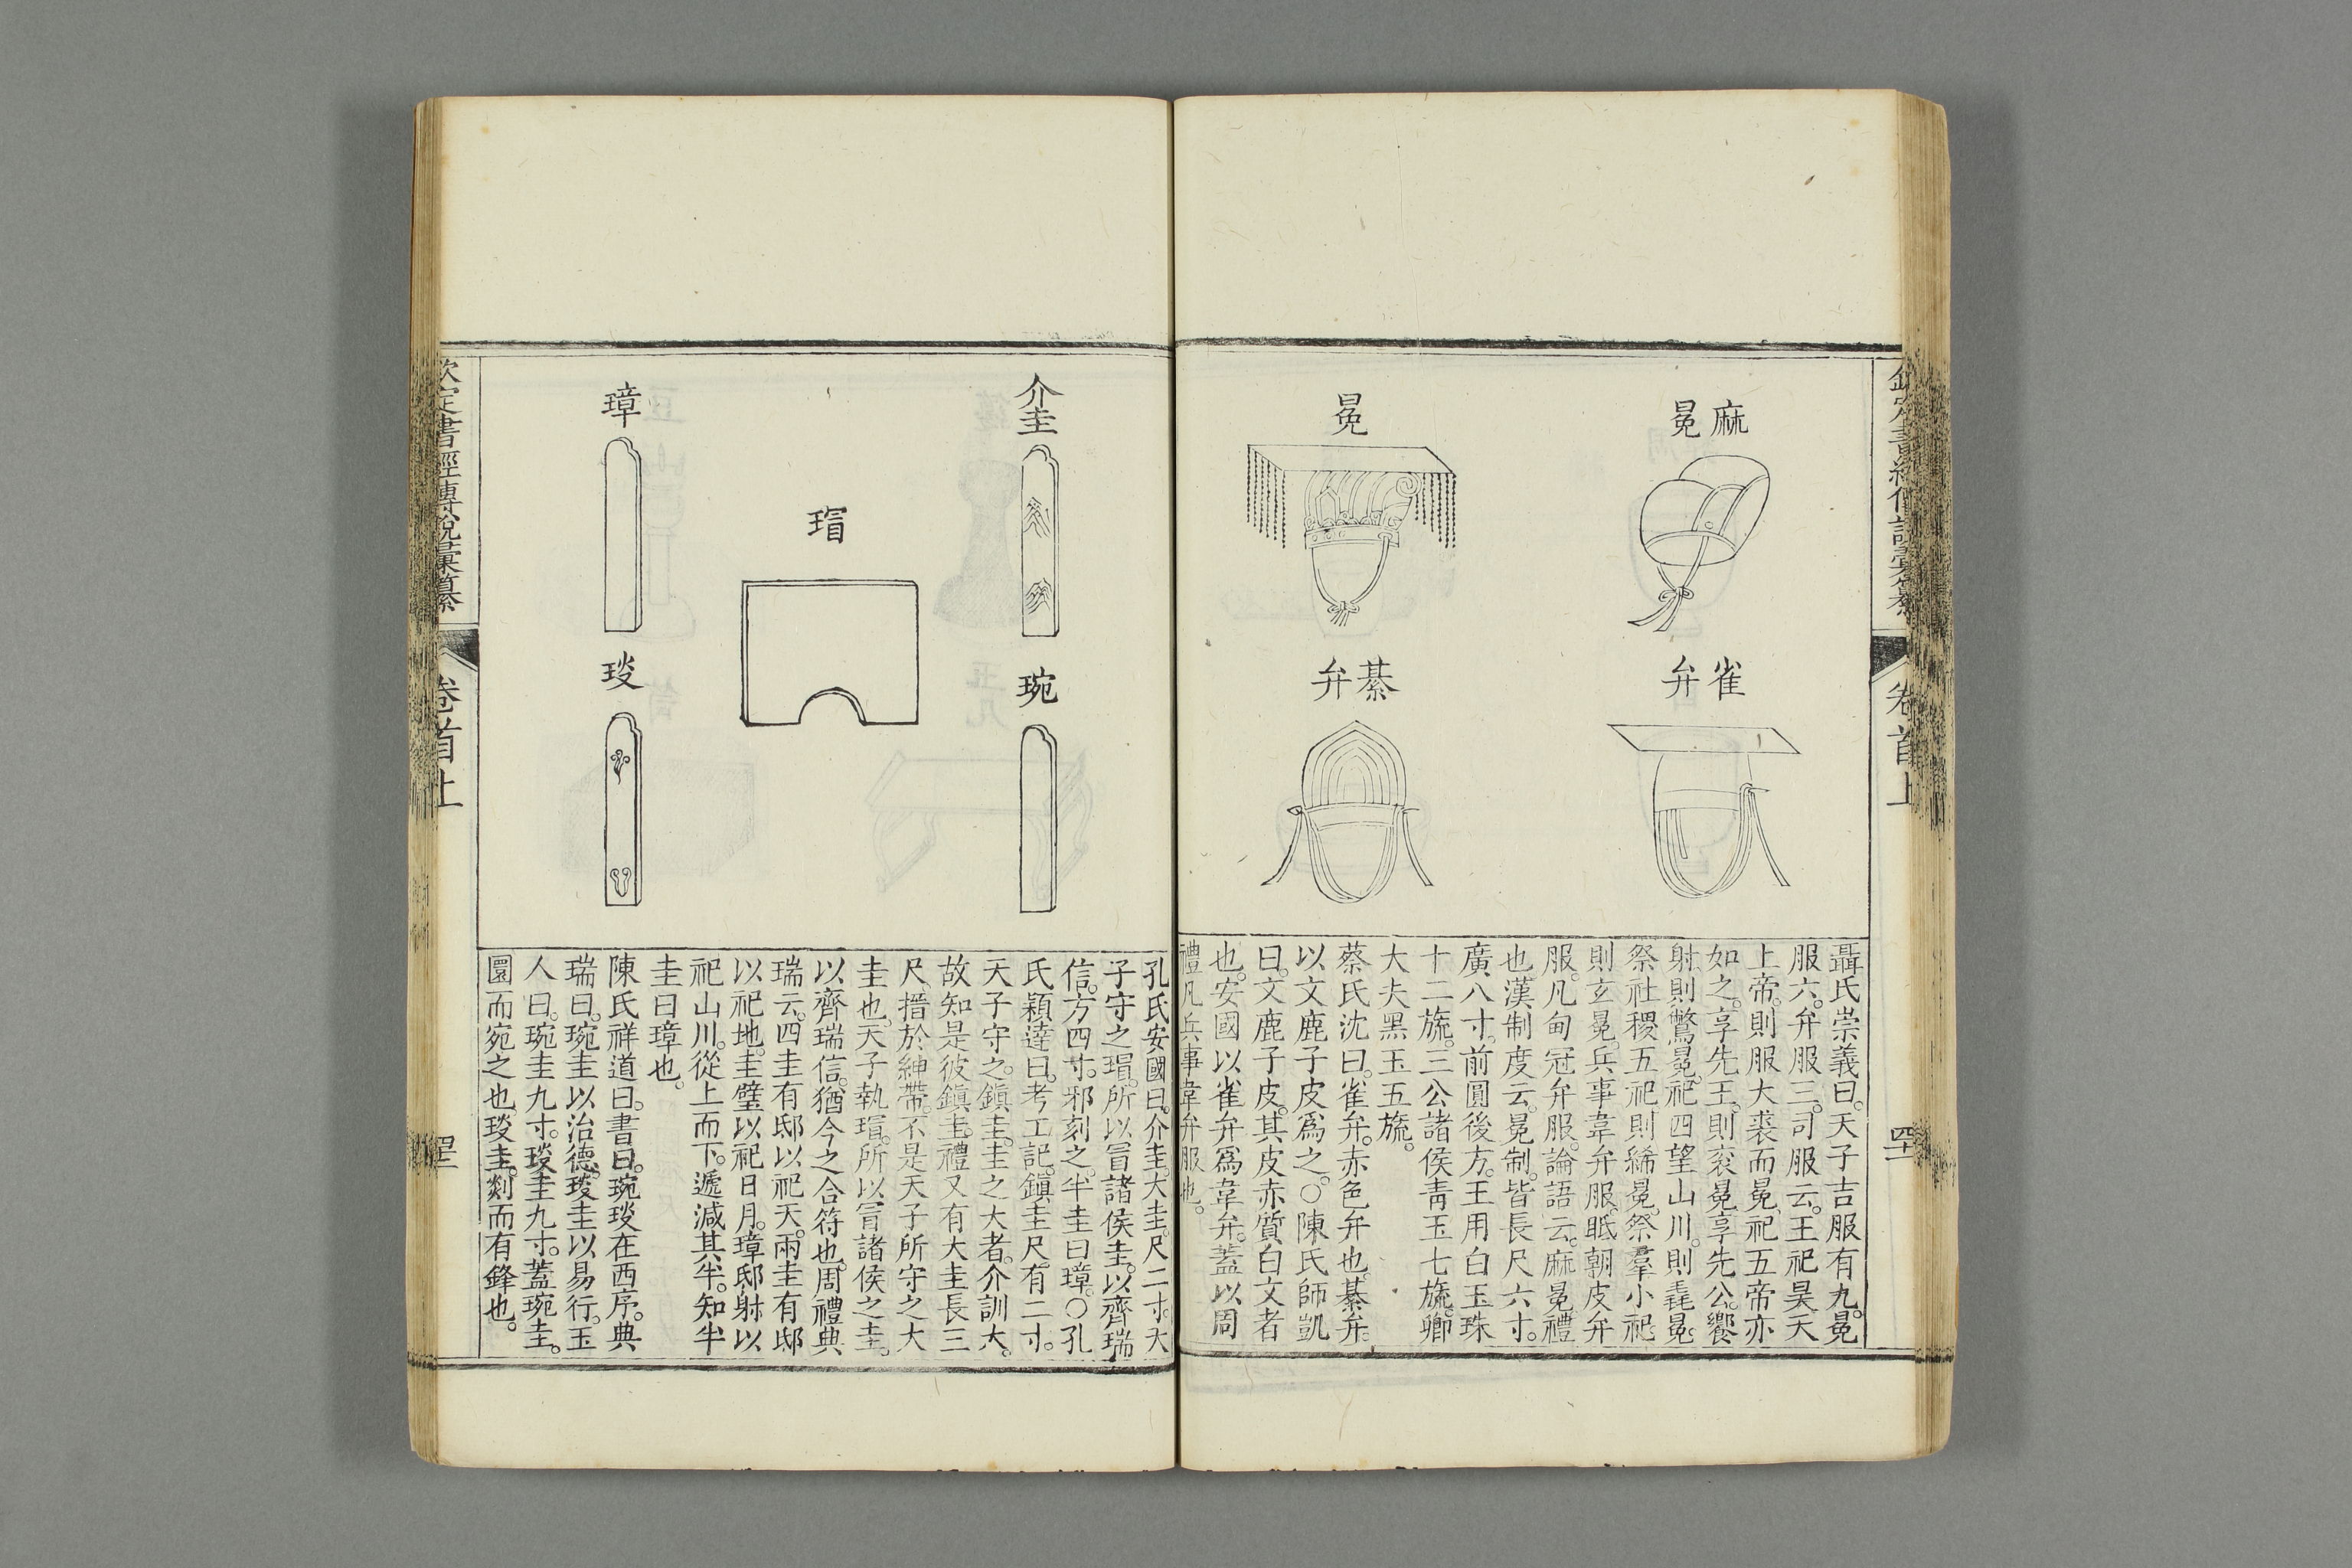 欽定書經傳說彙纂
卷首上
四十一
麻冕
冕
雀弁
綦弁
聶氏崇義曰。天子吉服有九。冕
服六。弁服三。司服云。王祀昊天
上帝。則服大裘而冕。祀五帝亦
如之。享先王。則袞冕。享先公。饗
射。則鷩冕。祀四望山川。則毳冕。
祭社稷五祀則絺冕。祭羣小祀
則玄冕。兵事韋弁服。眡朝皮弁
服。凡甸冠弁服。論語云。麻冕禮
也漢制度云。冕制。皆長尺六寸。
廣八寸。前圓後方。王用白玉珠
十二旒。三公諸侯青玉七旒。卿
大夫黑玉五旒。
蔡氏沈曰。雀弁。赤色弁也。綦弁
以文鹿子皮爲之。○陳氏師凱
曰。文鹿子皮。其皮赤質白文者
也。安國以雀弁爲韋弁。蓋以周
禮凡兵事韋弁服也。
介圭
琬
瑁
璋
琰
孔氏安國曰。介圭。大圭。尺二寸。大
子守之。瑁。所以冒諸侯圭。以齊瑞
信。方四寸。邪刻之。半圭曰璋。○孔
氏穎達曰。考工記。鎭圭尺。有二寸。
天子守之。鎭圭。圭之大者。介訓大。
故知是彼鎭圭。禮又有大圭長三
尺。搢於紳帶。不是天子所守之大
圭也。天子執瑁。所以冒諸侯之圭。
以齊瑞信。猶今之合符也。周禮典
瑞云。四圭有邸以祀天。兩圭有邸
以祀地。圭璧以祀日月。璋邸射以
祀山川。從上而下。遞減其半。知半
圭曰璋也。
陳氏祥道曰。書曰。琬琰在西序。典
瑞曰。琬圭以治德。琰圭以易行。玉
人曰。琬圭九寸。琰圭九寸。蓋琬圭。
圜而宛之也。琰圭。剡而有鋒也。
欽定書經傳說彙纂
卷首上